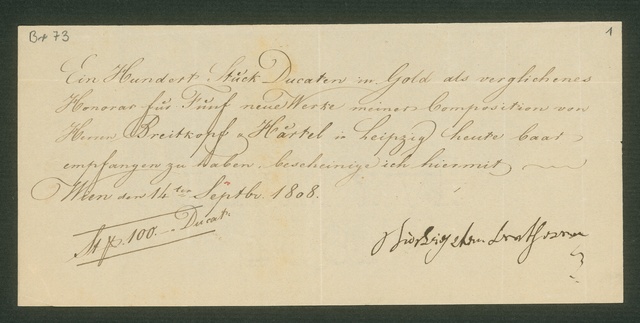 Br 73
1
Ein Hundert Stück Ducaten in Gold als verglichenes
Honorar für Fünf neue Werke meiner Composition von
Herrn Breitkopf & Härtel in Leipzig heute baar
empfangen zu haben bescheinige ich hiermit
Wien den 14ten Septbr. 1808.
100. Ducat.
Ludwig van Beethoven